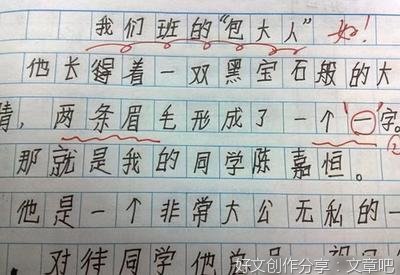 我们班的“包大人” 好!
他长得着一双黑宝石般的大
睛,两条眉毛形成了一个“一”字。
那就是我的同学陈嘉恒。
他是一个非常大公无私的一
对待同学他
好文创作分享:文章吧